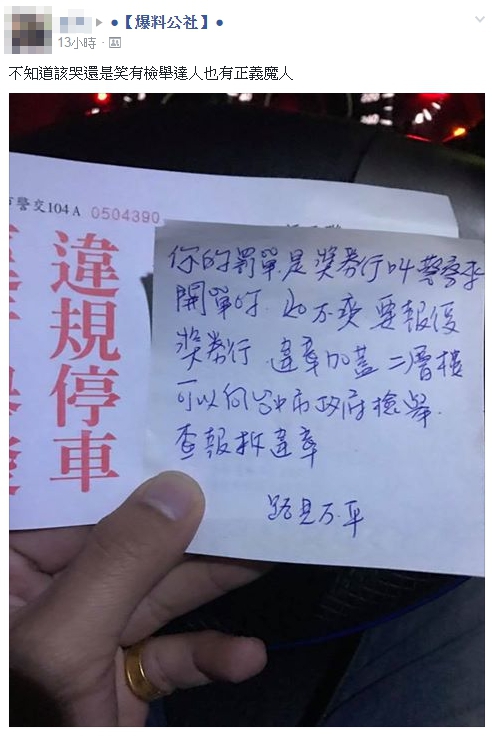 ●【爆料公社】●
13小時
不知道該哭還是笑有檢舉達人也有正義魔人
警交104A 0504390
違規停車
你的罰單是獎券行叫警察來
開單的 如不爽要報復
獎券行 違章加蓋二層樓
可以向台中市政府檢舉.
查報拆違章
路見不平